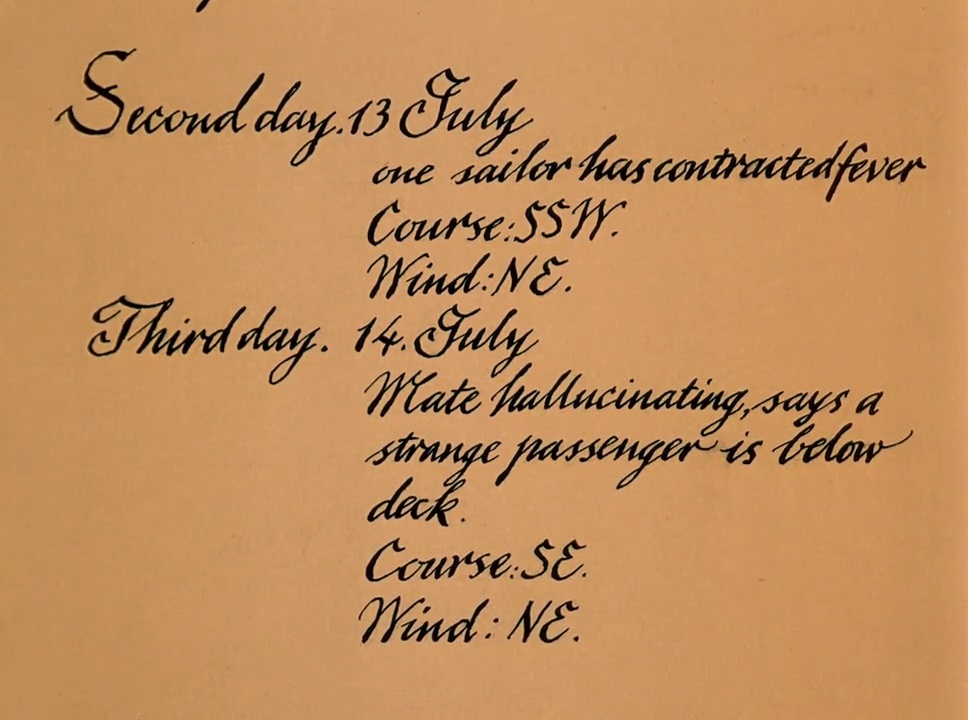 Second day. 13 July
one sailor has contracted fever
Course: SSW.
Wind: NE.
Third day. 14. July
Mate hallucinating, says a
strange passenger is below
deck.
Course: SE.
Wind: NE.